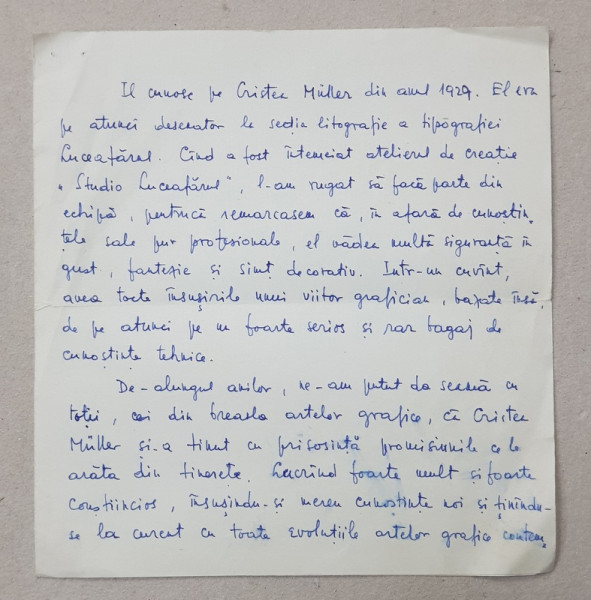 Îl cunosc pe Cristea Müller din anul 1929. El era
pe atunci desenator la secția litografie a tipografiei
Luceafărul. Cînd a fost întemeiat atelierul de creație
"Studio Luceafărul", l-am rugat să facă parte din
echipă, pentrucă remarcasem că, în afară de cunoștin-
țele sale pur profesionale, el vădea multă siguranță în
gust, fantezie și simț decorativ. Într-un cuvînt,
avea toate însușirile unui viitor grafician, bazate însă,
de pe atunci pe un foarte serios și rar bagaj de
cunoștințe tehnice.
De-alungul anilor, ne-am putut da seama cu
toții, cei din breasla artelor grafice, că Cristea
Müller și-a ținut cu prisosință promisiunile ce le
arăta din tinerețe. Lucrînd foarte mult și foarte
conștiincios, însușindu-și mereu cunoștințe noi și ținîndu-
se la curent cu toate evoluțiile artelor grafice contem-